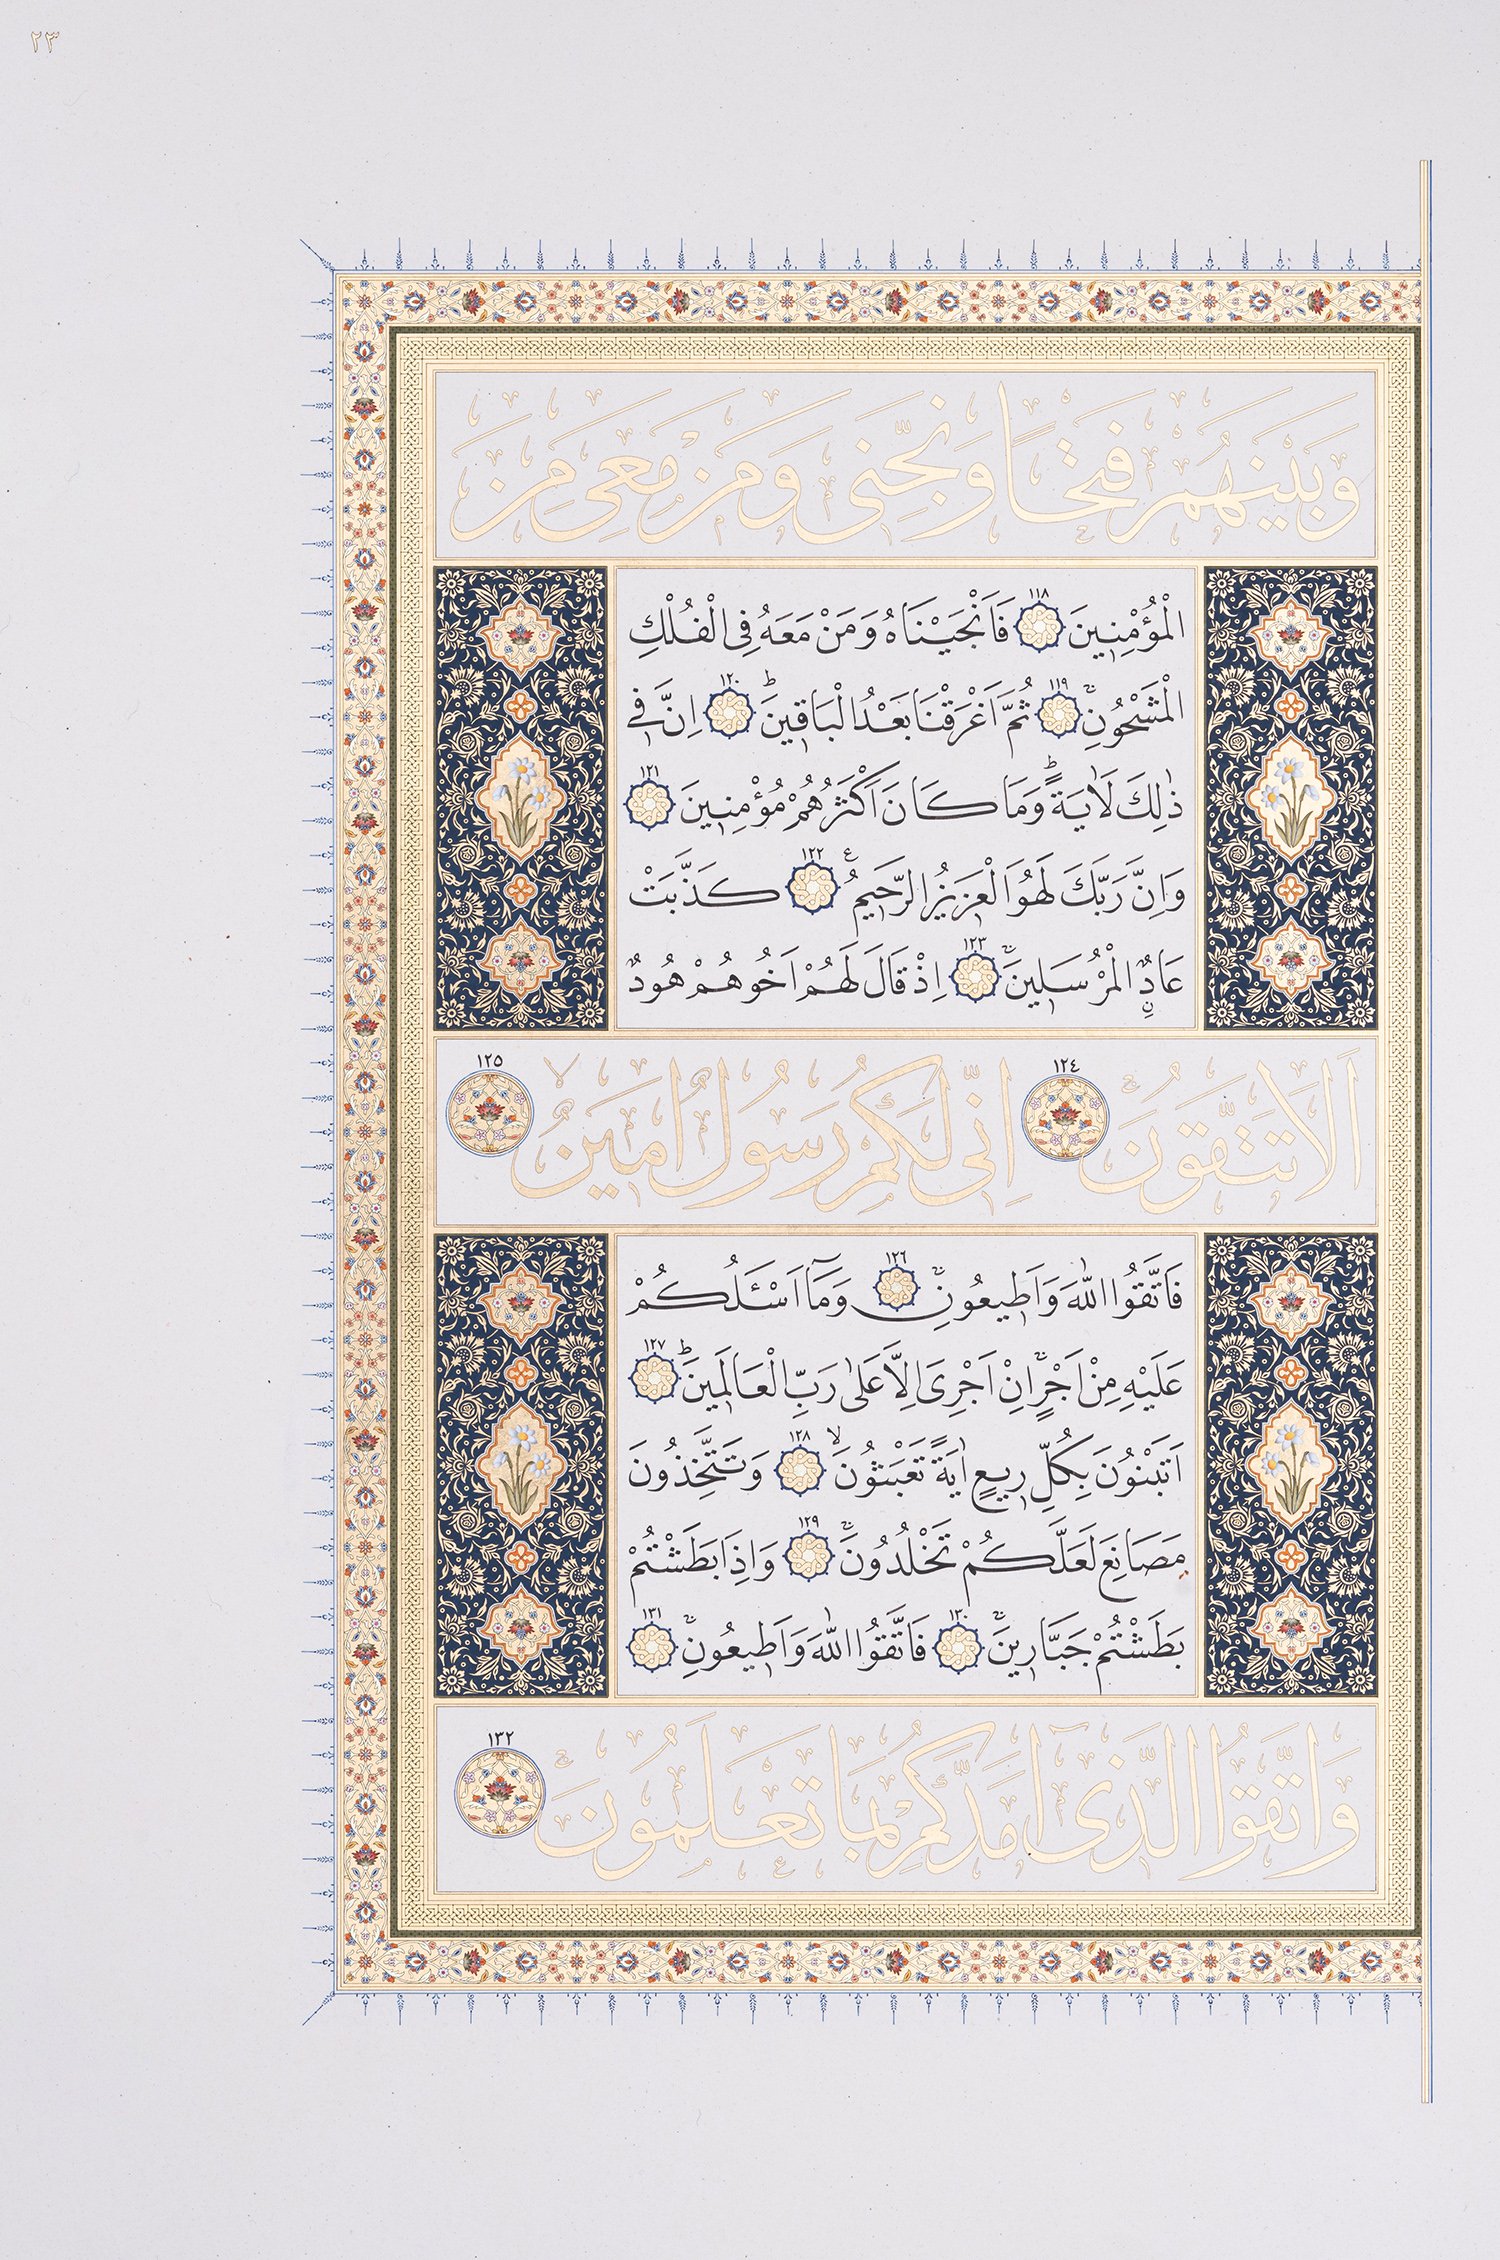 ٢٣
وَبَيْنَهُمْ فَتْحًا وَنَجِّنٖى وَمَنْ مَعِىَ مِنَ
الْمُؤْمِنٖينَ ١١٨ فَاَنْجَيْنَاهُ وَمَنْ مَعَهُ فِى الْفُلْكِ
الْمَشْحُونِۚ ١١٩ ثُمَّ اَغْرَقْنَا بَعْدُ الْبَاقٖينَؕ ١٢٠ اِنَّ فٖى
ذٰلِكَ لَاٰيَةًؕ وَمَا كَانَ اَكْثَرُهُمْ مُؤْمِنٖينَ ١٢١
وَاِنَّ رَبَّكَ لَهُوَ الْعَزٖيزُ الرَّحٖيمُ ع ١٢٢ كَذَّبَتْ
عَادٌ الْمُرْسَلٖينَۚ ١٢٣ اِذْ قَالَ لَهُمْ اَخُوهُمْ هُودٌ
اَلَا تَتَّقُونَۚ ١٢٤ اِنّٖى لَكُمْ رَسُولٌ اَمٖينٌۙ ١٢٥
فَاتَّقُوا اللّٰهَ وَاَطٖيعُونِۚ ١٢٦ وَمَٓا اَسْـَٔلُكُمْ
عَلَيْهِ مِنْ اَجْرٍۚ اِنْ اَجْرِىَ اِلَّا عَلٰى رَبِّ الْعَالَمٖينَؕ ١٢٧
اَتَبْنُونَ بِكُلِّ رٖيعٍ اٰيَةً تَعْبَثُونَۙ ١٢٨ وَتَتَّخِذُونَ
مَصَانِعَ لَعَلَّكُمْ تَخْلُدُونَۚ ١٢٩ وَاِذَا بَطَشْتُمْ
بَطَشْتُمْ جَبَّارٖينَۚ ١٣٠ فَاتَّقُوا اللّٰهَ وَاَطٖيعُونِۚ ١٣١
وَاتَّقُوا الَّذٖٓى اَمَدَّكُمْ بِمَا تَعْلَمُونَۚ ١٣٢